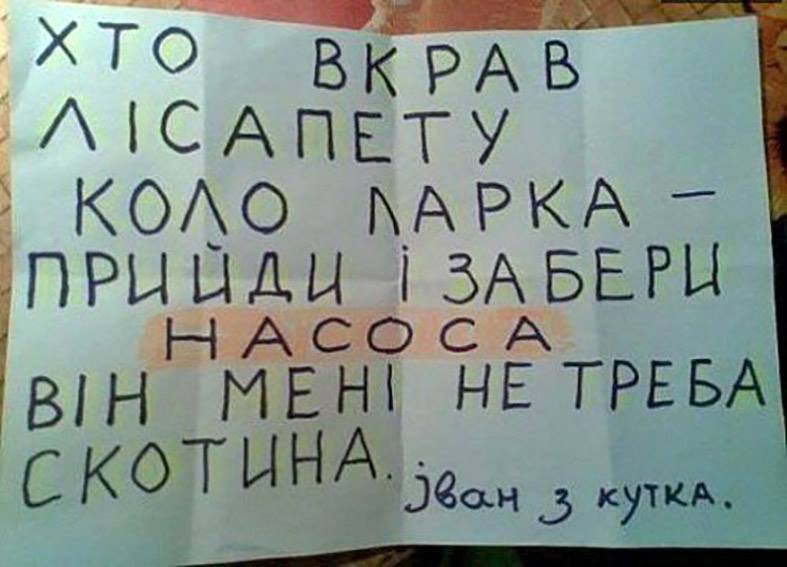 ХТО ВКРАВ
ЛІСАПЕТУ
КОЛО ПАРКА –
ПРИЙДИ І ЗАБЕРИ
НАСОСА
ВІН МЕНІ НЕ ТРЕБА
СКОТИНА.
Јван з кутка.